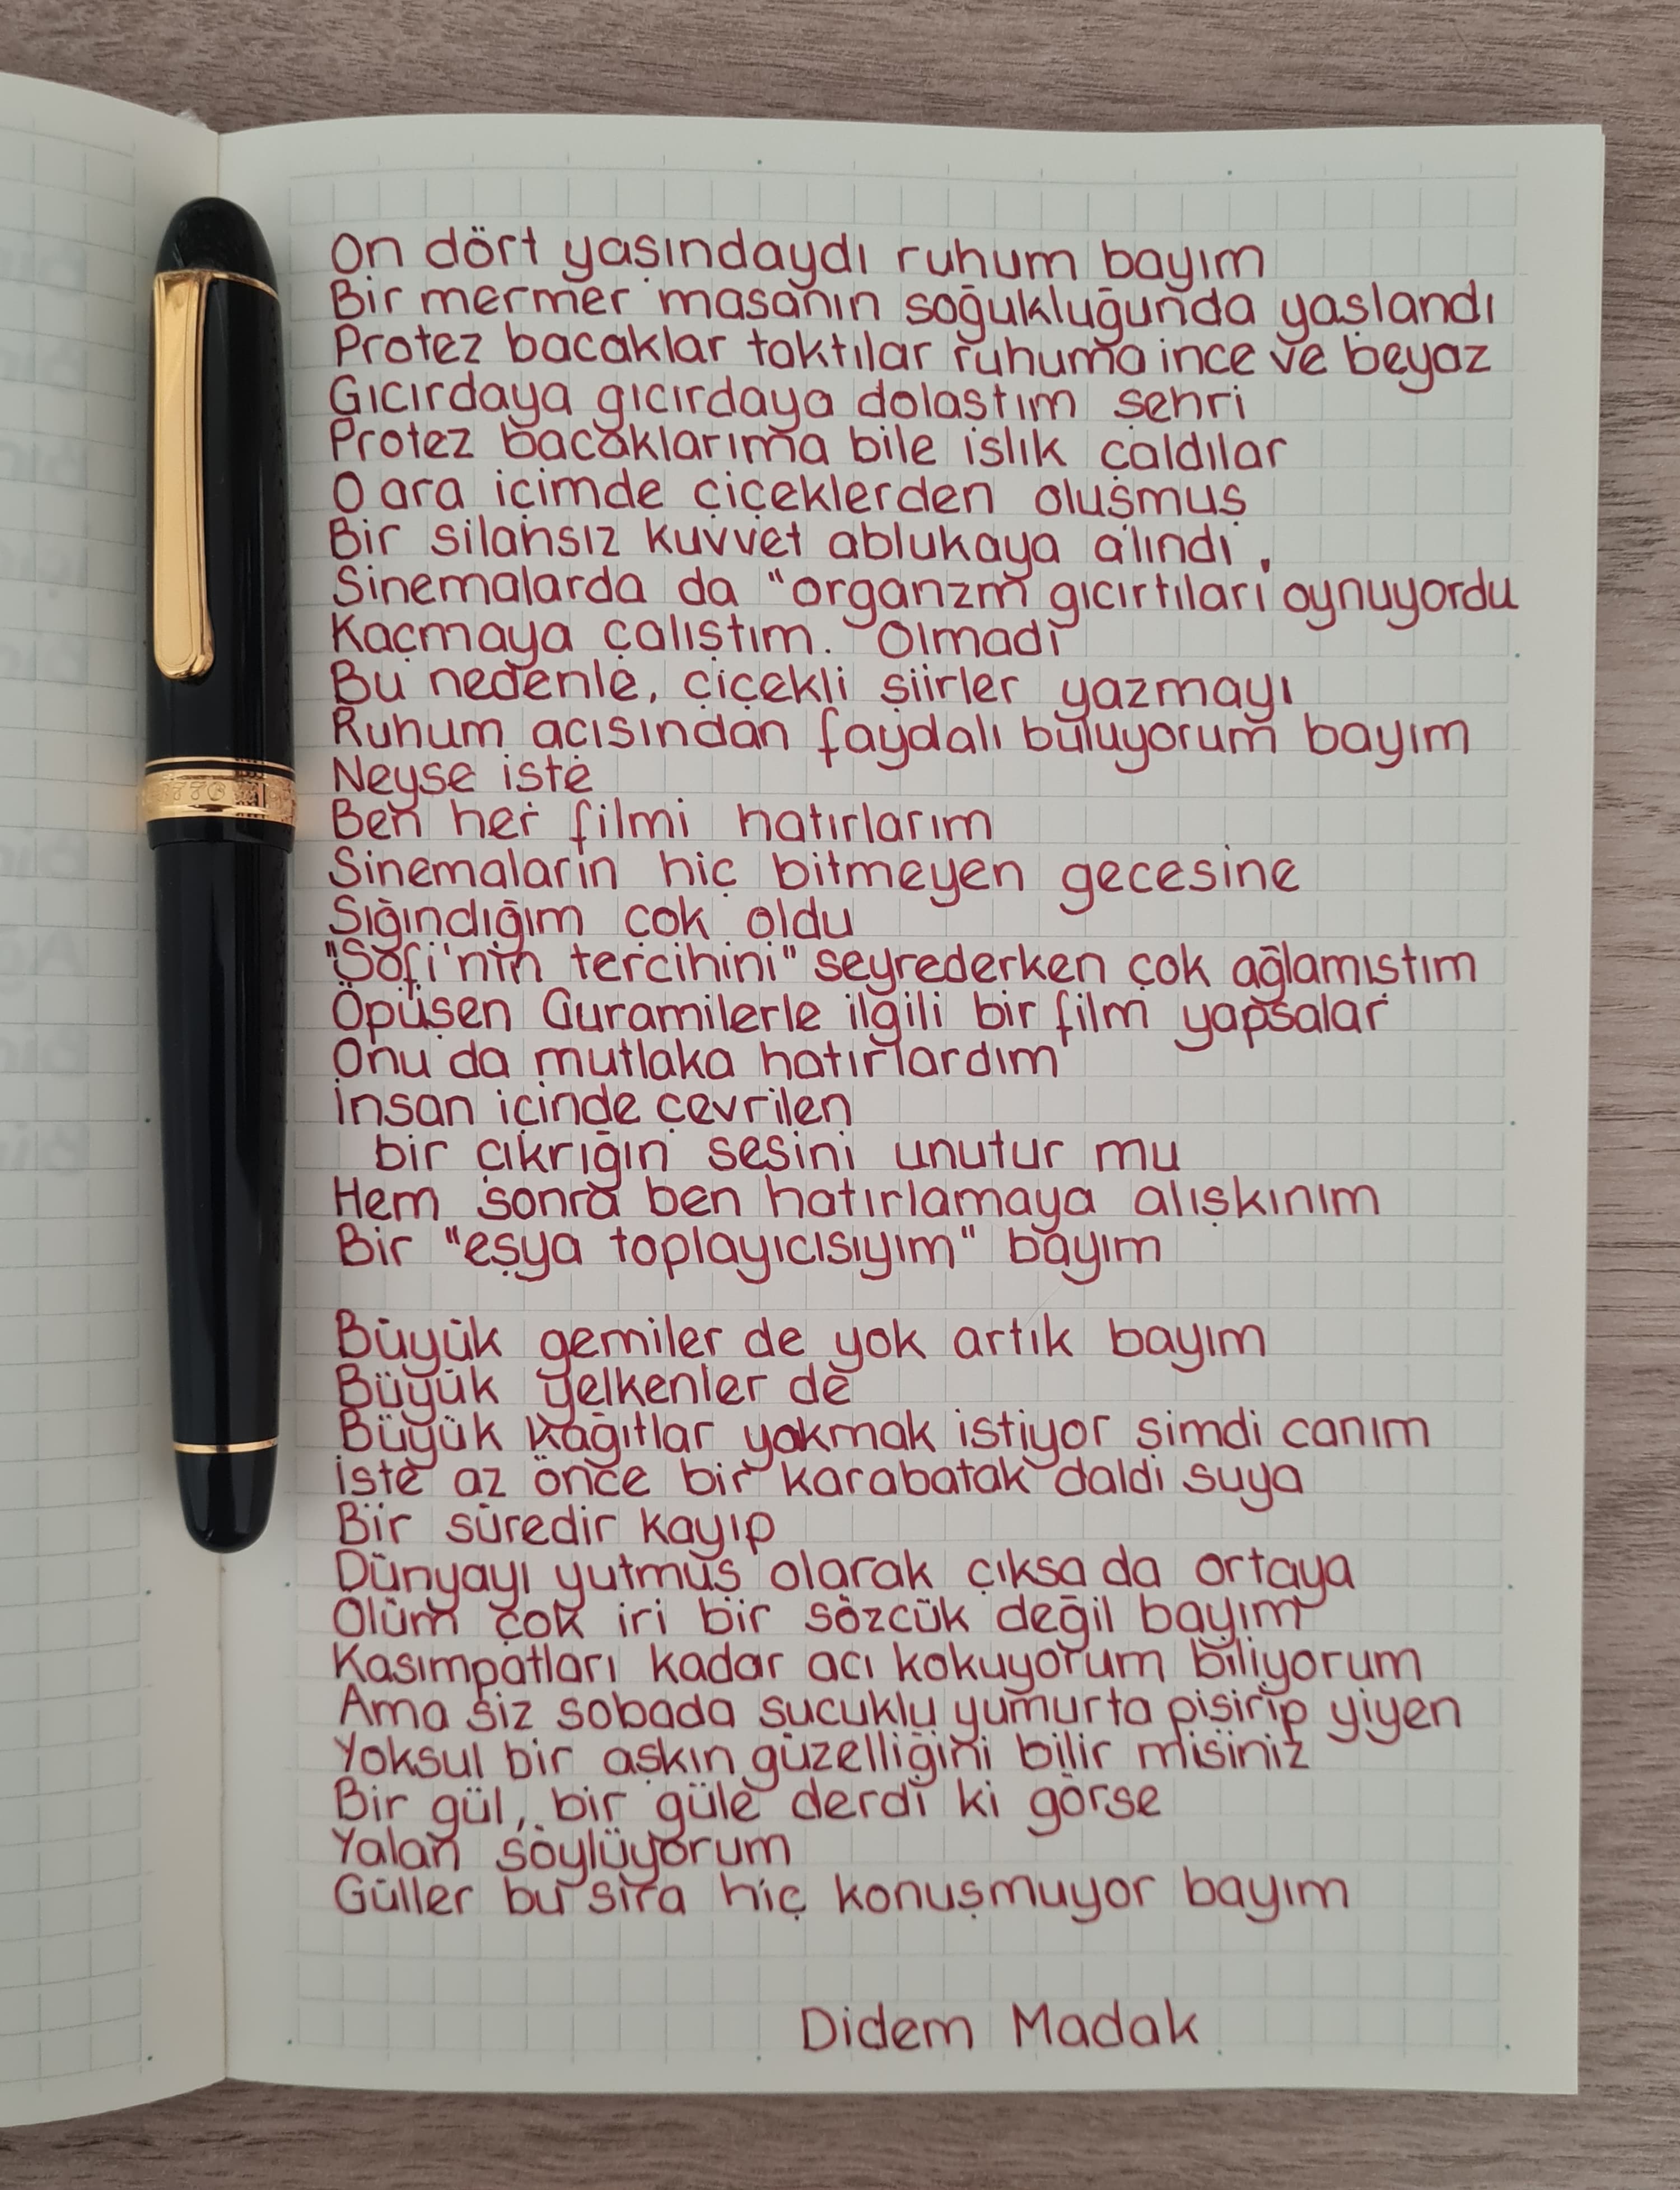 On dört yaşındaydı ruhum bayım
Bir mermer masanın soğukluğunda yaşlandı
Protez bacaklar taktılar ruhuma ince ve beyaz
Gıcırdaya gıcırdaya dolaştım şehri
Protez bacaklarıma bile ıslık çaldılar
O ara içimde çiçeklerden oluşmuş
Bir silahsız kuvvet ablukaya alındı.
Sinemalarda da "organzm gıcırtıları oynuyordu
Kaçmaya çalıştım. Olmadı
Bu nedenle, çiçekli şiirler yazmayı
Ruhum açısından faydalı buluyorum bayım
Neyse işte
Ben her filmi hatırlarım
Sinemaların hiç bitmeyen gecesine
Sığındığım çok oldu
"Sofi'nin tercihini" seyrederken çok ağlamıştım
Öpüşen Guramilerle ilgili bir film yapsalar
Onu da mutlaka hatırlardım
İnsan içinde çevrilen
bir çıkrığın sesini unutur mu
Hem sonra ben hatırlamaya alışkınım
Bir "eşya toplayıcısıyım" bayım
Büyük gemiler de yok artık bayım
Büyük yelkenler de
Büyük kağıtlar yakmak istiyor şimdi canım
İşte az önce bir karabatak daldı suya
Bir süredir kayıp
Dünyayı yutmuş olarak çıksa da ortaya
Ölüm çok iri bir sözcük değil bayım
Kasımpatları kadar acı kokuyorum biliyorum
Ama siz sobada sucuklu yumurta pişirip yiyen
Yoksul bir aşkın güzelliğini bilir misiniz
Bir gül, bir güle derdi ki görse
Yalan söylüyorum
Güller bu sıra hiç konuşmuyor bayım
Didem Madak